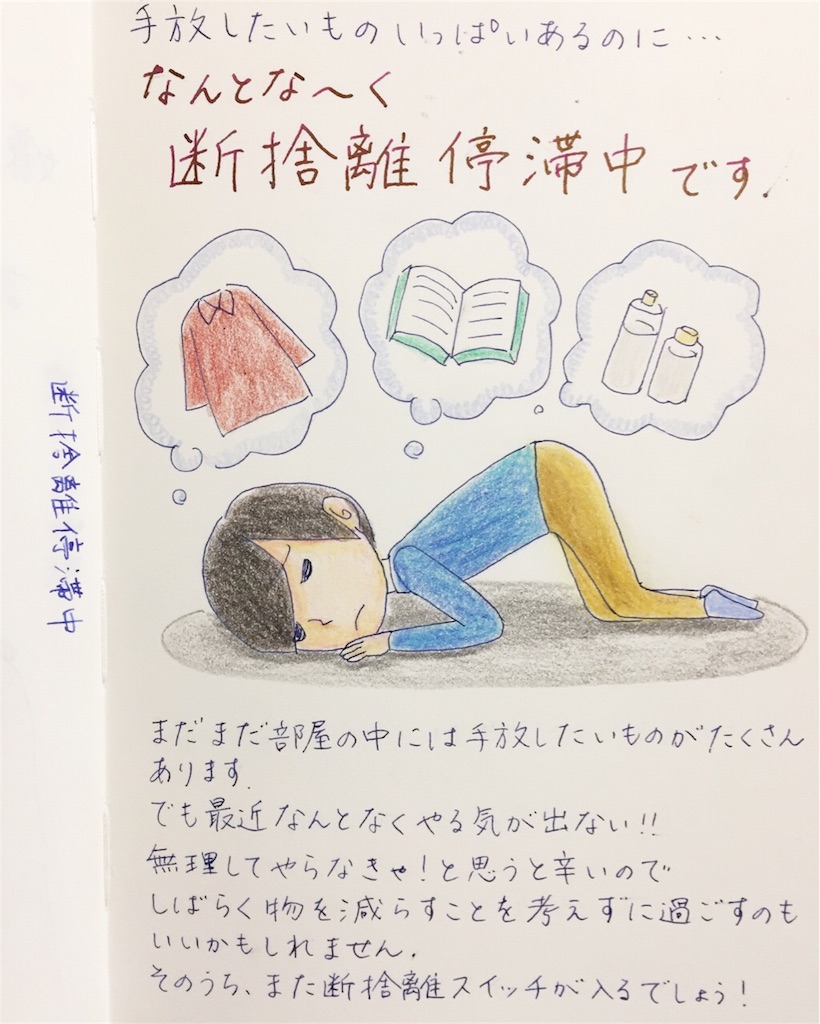 手放したいものいっぱいあるのに…
なんとな〜く
断捨離停滞中です.
断捨離停滞中
まだまだ部屋の中には手放したいものがたくさん
あります.
でも最近なんとなくやる気が出ない!!
無理してやらなきゃ!と思うと辛いので
しばらく物を減らすことを考えずに過ごすのも
いいかもしれません.
そのうち、また断捨離スイッチが入るでしょう!